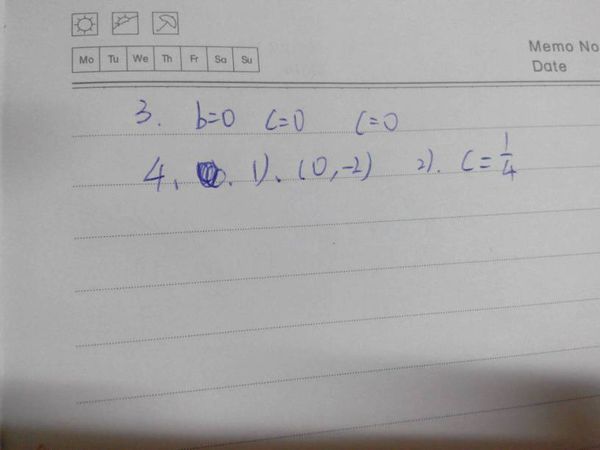 Mo Tu We Th Fr Sa Su
Memo No
Date
3. b=0 c=0 c=0
4、 1)、(0,-2) 2). c=1/4